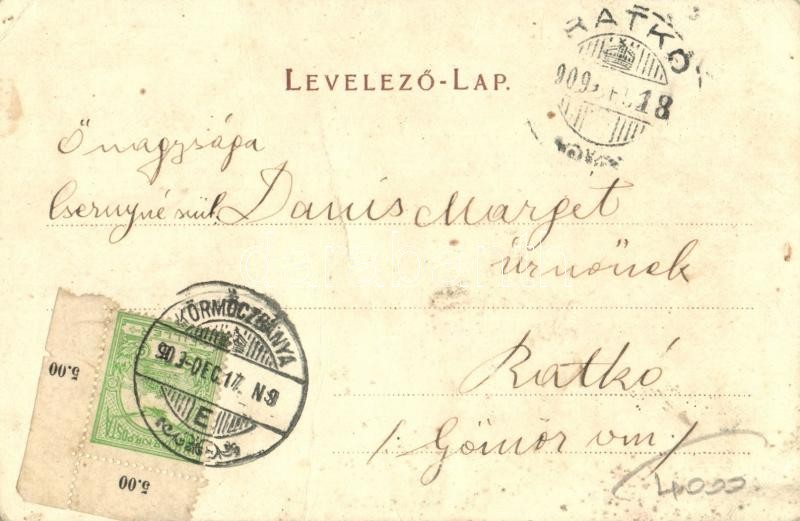 LEVELEZŐ-LAP.
RATKÓ
909 18
Őnagysága
Csernyné szül. Danis Marget
úrnőnek
Ratkó
/: Gömör vm /
4000.
KÖRMÖCZBÁNYA
903-DEC.17. N9
E
5.00
5.00